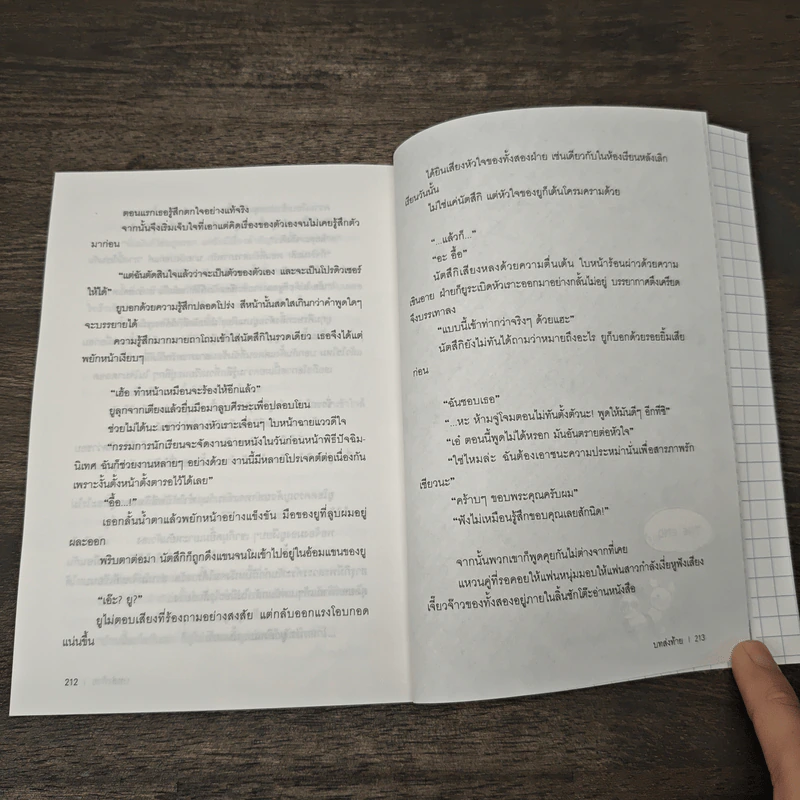 ตอนแรกเธอรู้สึกตกใจอย่างแท้จริง
จากนั้นจึงเริ่มเจ็บใจที่เอาแต่คิดเรื่องของตัวเองจนไม่เคยรู้สึกตัว
มาก่อน
“แต่ฉันตัดสินใจแล้วว่าจะเป็นตัวของตัวเอง และจะเป็นโปรดิวเซอร์
ให้ได้”
ยูบอกด้วยความรู้สึกปลอดโปร่ง สีหน้านั้นสดใสเกินกว่าคำพูดใดๆ
จะบรรยายได้
ความรู้สึกมากมายถาโถมเข้าใส่นัตสึกิในรวดเดียว เธอจึงได้แต่
พยักหน้าเงียบๆ
“เฮ้อ ทำหน้าเหมือนจะร้องไห้อีกแล้ว”
ยูลุกจากเตียงแล้วยื่นมือมาลูบศีรษะเพื่อปลอบโยน
ช่วยไม่ได้นะ เขาว่าพลางหัวเราะเจื่อนๆ ใบหน้าฉายแววดีใจ
“กรรมการนักเรียนจะจัดงานฉายหนังในวันก่อนหน้าพิธีปัจฉิม-
นิเทศ ฉันก็ช่วยงานหลายๆ อย่างด้วย งานนี้มีหลายโปรเจคต์ต่อเนื่องกัน
เพราะงั้นตั้งหน้าตั้งตารอไว้ได้เลย”
“อื้อ...!”
เธอกลั้นน้ำตาแล้วพยักหน้าอย่างแข็งขัน มือของยูที่ลูบผมอยู่
ผละออก
พริบตาต่อมา นัตสึกิก็ถูกดึงแขนจนโผเข้าไปอยู่ในอ้อมแขนของยู
“เอ๊ะ? ยู?”
ยูไม่ตอบเสียงที่ร้องถามอย่างสงสัย แต่กลับออกแรงโอบกอด
แน่นขึ้น
212
ได้ยินเสียงหัวใจของทั้งสองฝ่าย เช่นเดียวกับในห้องเรียนหลังเลิก
เรียนวันนั้น
ไม่ใช่แค่นัตสึกิ แต่หัวใจของยูก็เต้นโครมครามด้วย
“...แล้วก็...”
“อะ อื้อ”
นัตสึกิเสียงหลงด้วยความตื่นเต้น ใบหน้าร้อนผ่าวด้วยความ
เขินอาย ฝ่ายก็ยูระเบิดหัวเราะออกมาอย่างกลั้นไม่อยู่ บรรยากาศตึงเครียด
จึงบรรเทาลง
“แบบนี้เข้าท่ากว่าจริงๆ ด้วยแฮะ”
นัตสึกิยังไม่ทันได้ถามว่าหมายถึงอะไร ยูก็บอกด้วยรอยยิ้มเสีย
ก่อน
“ฉันชอบเธอ”
“...หะ ห้ามจู่โจมตอนไม่ทันตั้งตัวนะ! พูดให้มันดีๆ อีกทีซิ”
“เอ๋ ตอนนี้พูดไม่ได้หรอก มันอันตรายต่อหัวใจ”
“ใช่ไหมล่ะ ฉันต้องเอาชนะความประหม่านั่นเพื่อสารภาพรัก
เชียวนะ”
“คร้าบๆ ขอบพระคุณครับผม”
“ฟังไม่เหมือนรู้สึกขอบคุณเลยสักนิด!”
จากนั้นพวกเขาก็พูดคุยกันไม่ต่างจากที่เคย
แหวนคู่ที่รอคอยให้แฟนหนุ่มมอบให้แฟนสาวกำลังเงี่ยหูฟังเสียง
เจี๊ยวจ๊าวของทั้งสองอยู่ภายในลิ้นชักโต๊ะอ่านหนังสือ
บทส่งท้าย | 213